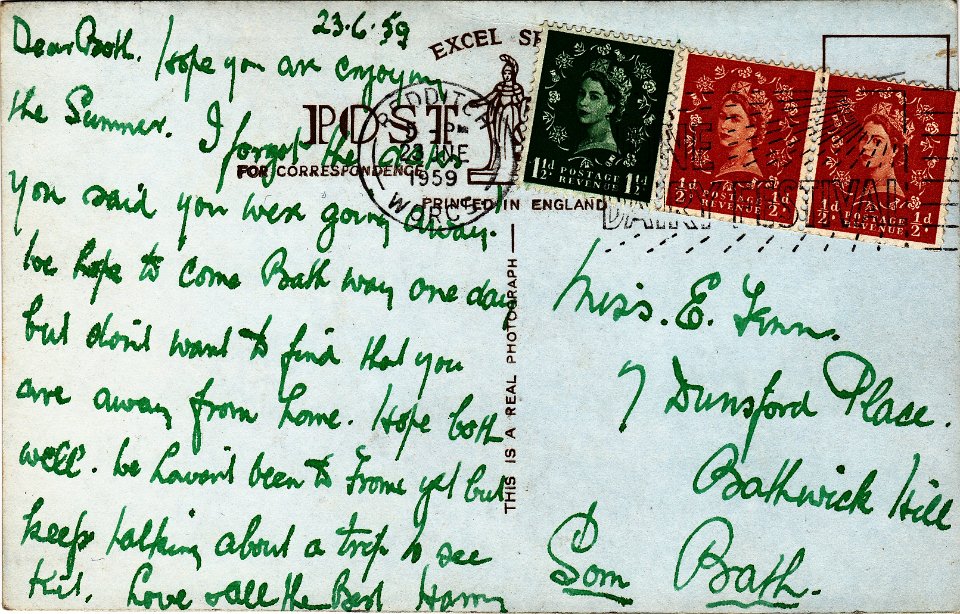 23.6.59
Dear Both. Hope you are enjoying
the Summer. I forgot the dates
you said you were going away.
We hope to come Bath way one day
but don't want to find that you
are away from home. Hope both
well. We haven't been to Frome yet but
keep talking about a trip to see
Kit. Love & all the Best Harry
EXCEL SE
POST
FOR CORRESPONDENCE
PRINTED IN ENGLAND
THIS IS A REAL PHOTOGRAPH
REDDITCH
PM
23 JNE
1959
WORCS
1½d POSTAGE REVENUE 1½d
½d POSTAGE REVENUE ½d
½d POSTAGE REVENUE ½d
DAIRY FESTIVAL
Miss. E. Fenn.
7 Dunsford Place.
Bathwick Hill
Bath.
Som